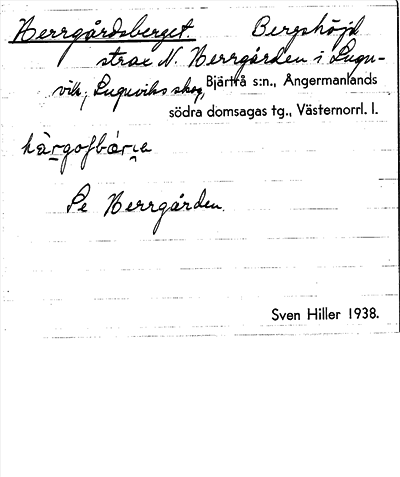 Herrgårdsberget. Bergshöjd
strax N. Herrgården i Lugn-
vik; Lugnviks skog, Bjärtrå s:n., Ångermanlands
södra domsagas tg., Västernorrl. l.
Se Herrgården.
Sven Hiller 1938.